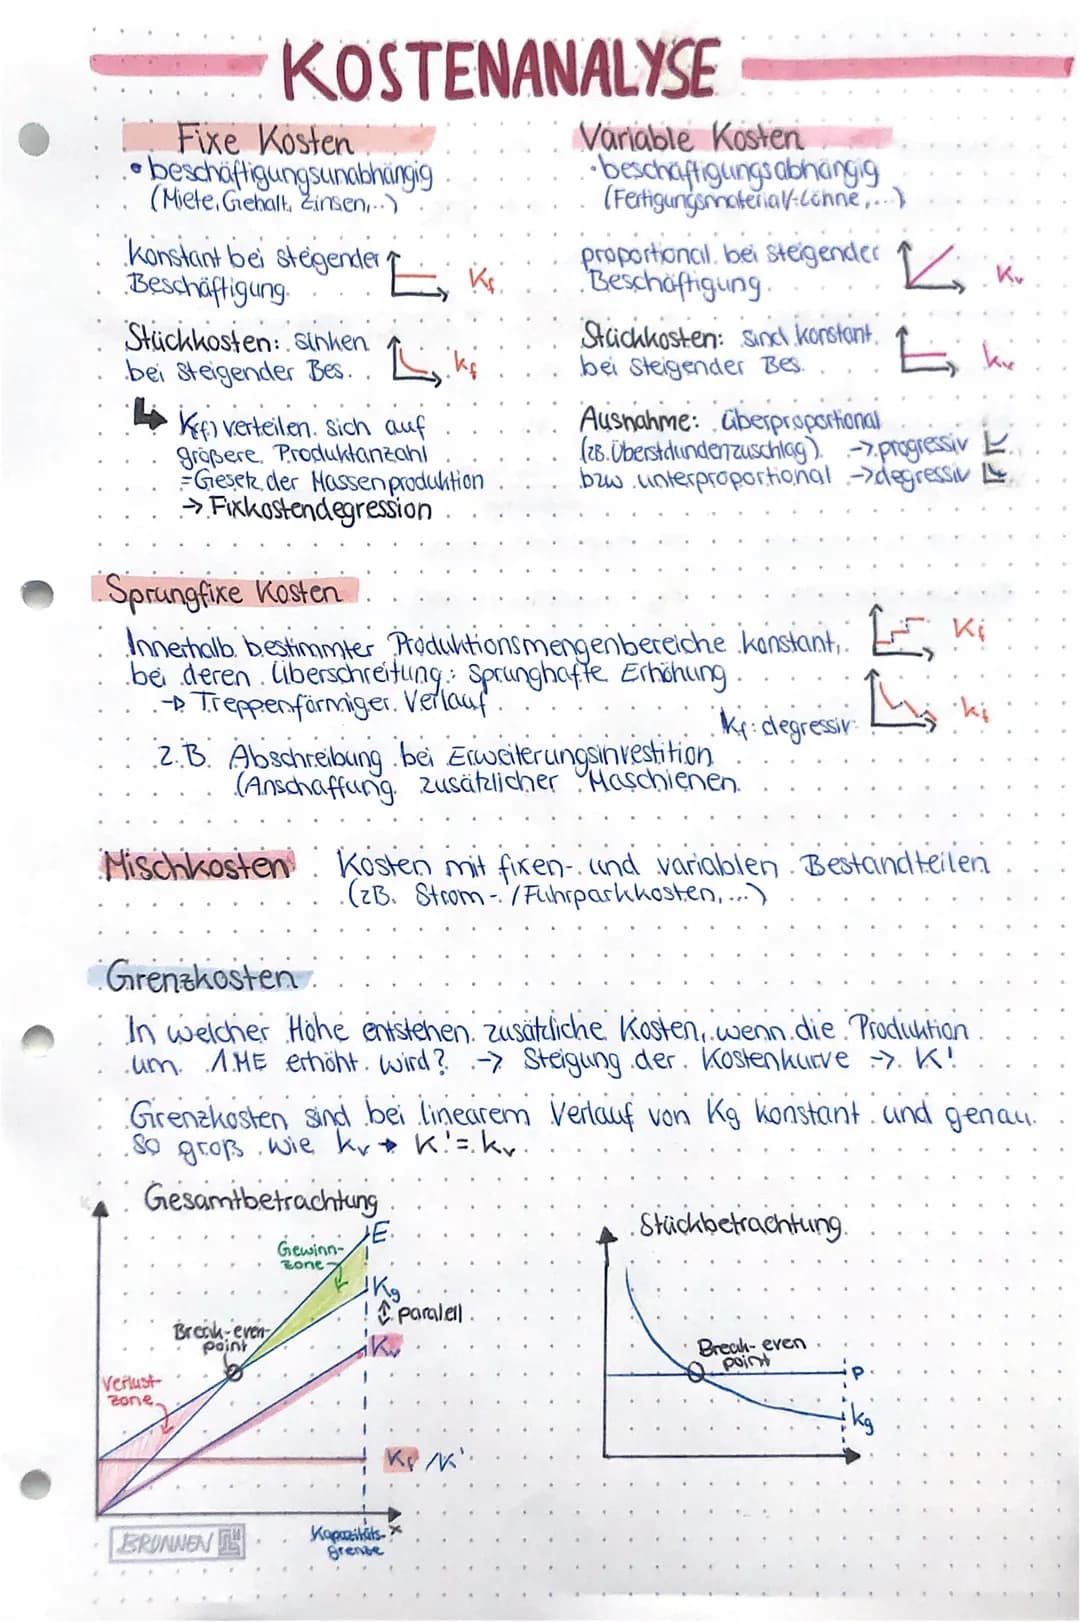 KOSTENANALYSE
Fixe Kosten
• beschäftigungsunabhängig
(Miete, Gehalt, Zinsen,...)
konstant bei steigender
Beschäftigung
Kf
Stückkosten: sinken
bei steigender Bes.
kf
↳ K(f) verteilen sich auf
größere Produktanzahl
=Gesetz der Massenproduktion
→ Fixkostendegression
Variable Kosten
• beschäftigungsabhängig
(Fertigungsmaterial/-Löhne,...)
proportional bei steigender
Beschäftigung
Kv
Stückkosten: sind konstant
bei steigender Bes.
kv
Ausnahme: überproportional
(zB. Überstdundenzuschlag) → progressiv
bzw. unterproportional → degressiv
Sprungfixe Kosten
Innerhalb bestimmter Produktionsmengenbereiche konstant,
bei deren Überschreitung: Sprunghafte Erhöhung
→ Treppenförmiger Verlauf
Kf
kf: degressiv
kf
z.B. Abschreibung bei Erweiterungsinvestition
(Anschaffung zusätzlicher Maschienen.
Mischkosten Kosten mit fixen- und variablen Bestandteilen
(zB. Strom-/Fuhrparkkosten,...)
Grenzkosten
In welcher Höhe entstehen zusätzliche Kosten, wenn die Produktion
um 1ME erhöht wird? → Steigung der Kostenkurve → K'
Grenzkosten sind bei linearem Verlauf von Kg konstant und genau
so groß wie kv → K'=kv
Gesamtbetrachtung
E
Gewinn-
zone
Kg
⇕ paralell
Break-even-
point
Kv
Verlust-
zone
Kf / K'
x
Kapazitäts-
grenze
BRUNNEN
Stückbetrachtung
Break-even
point
P
kg